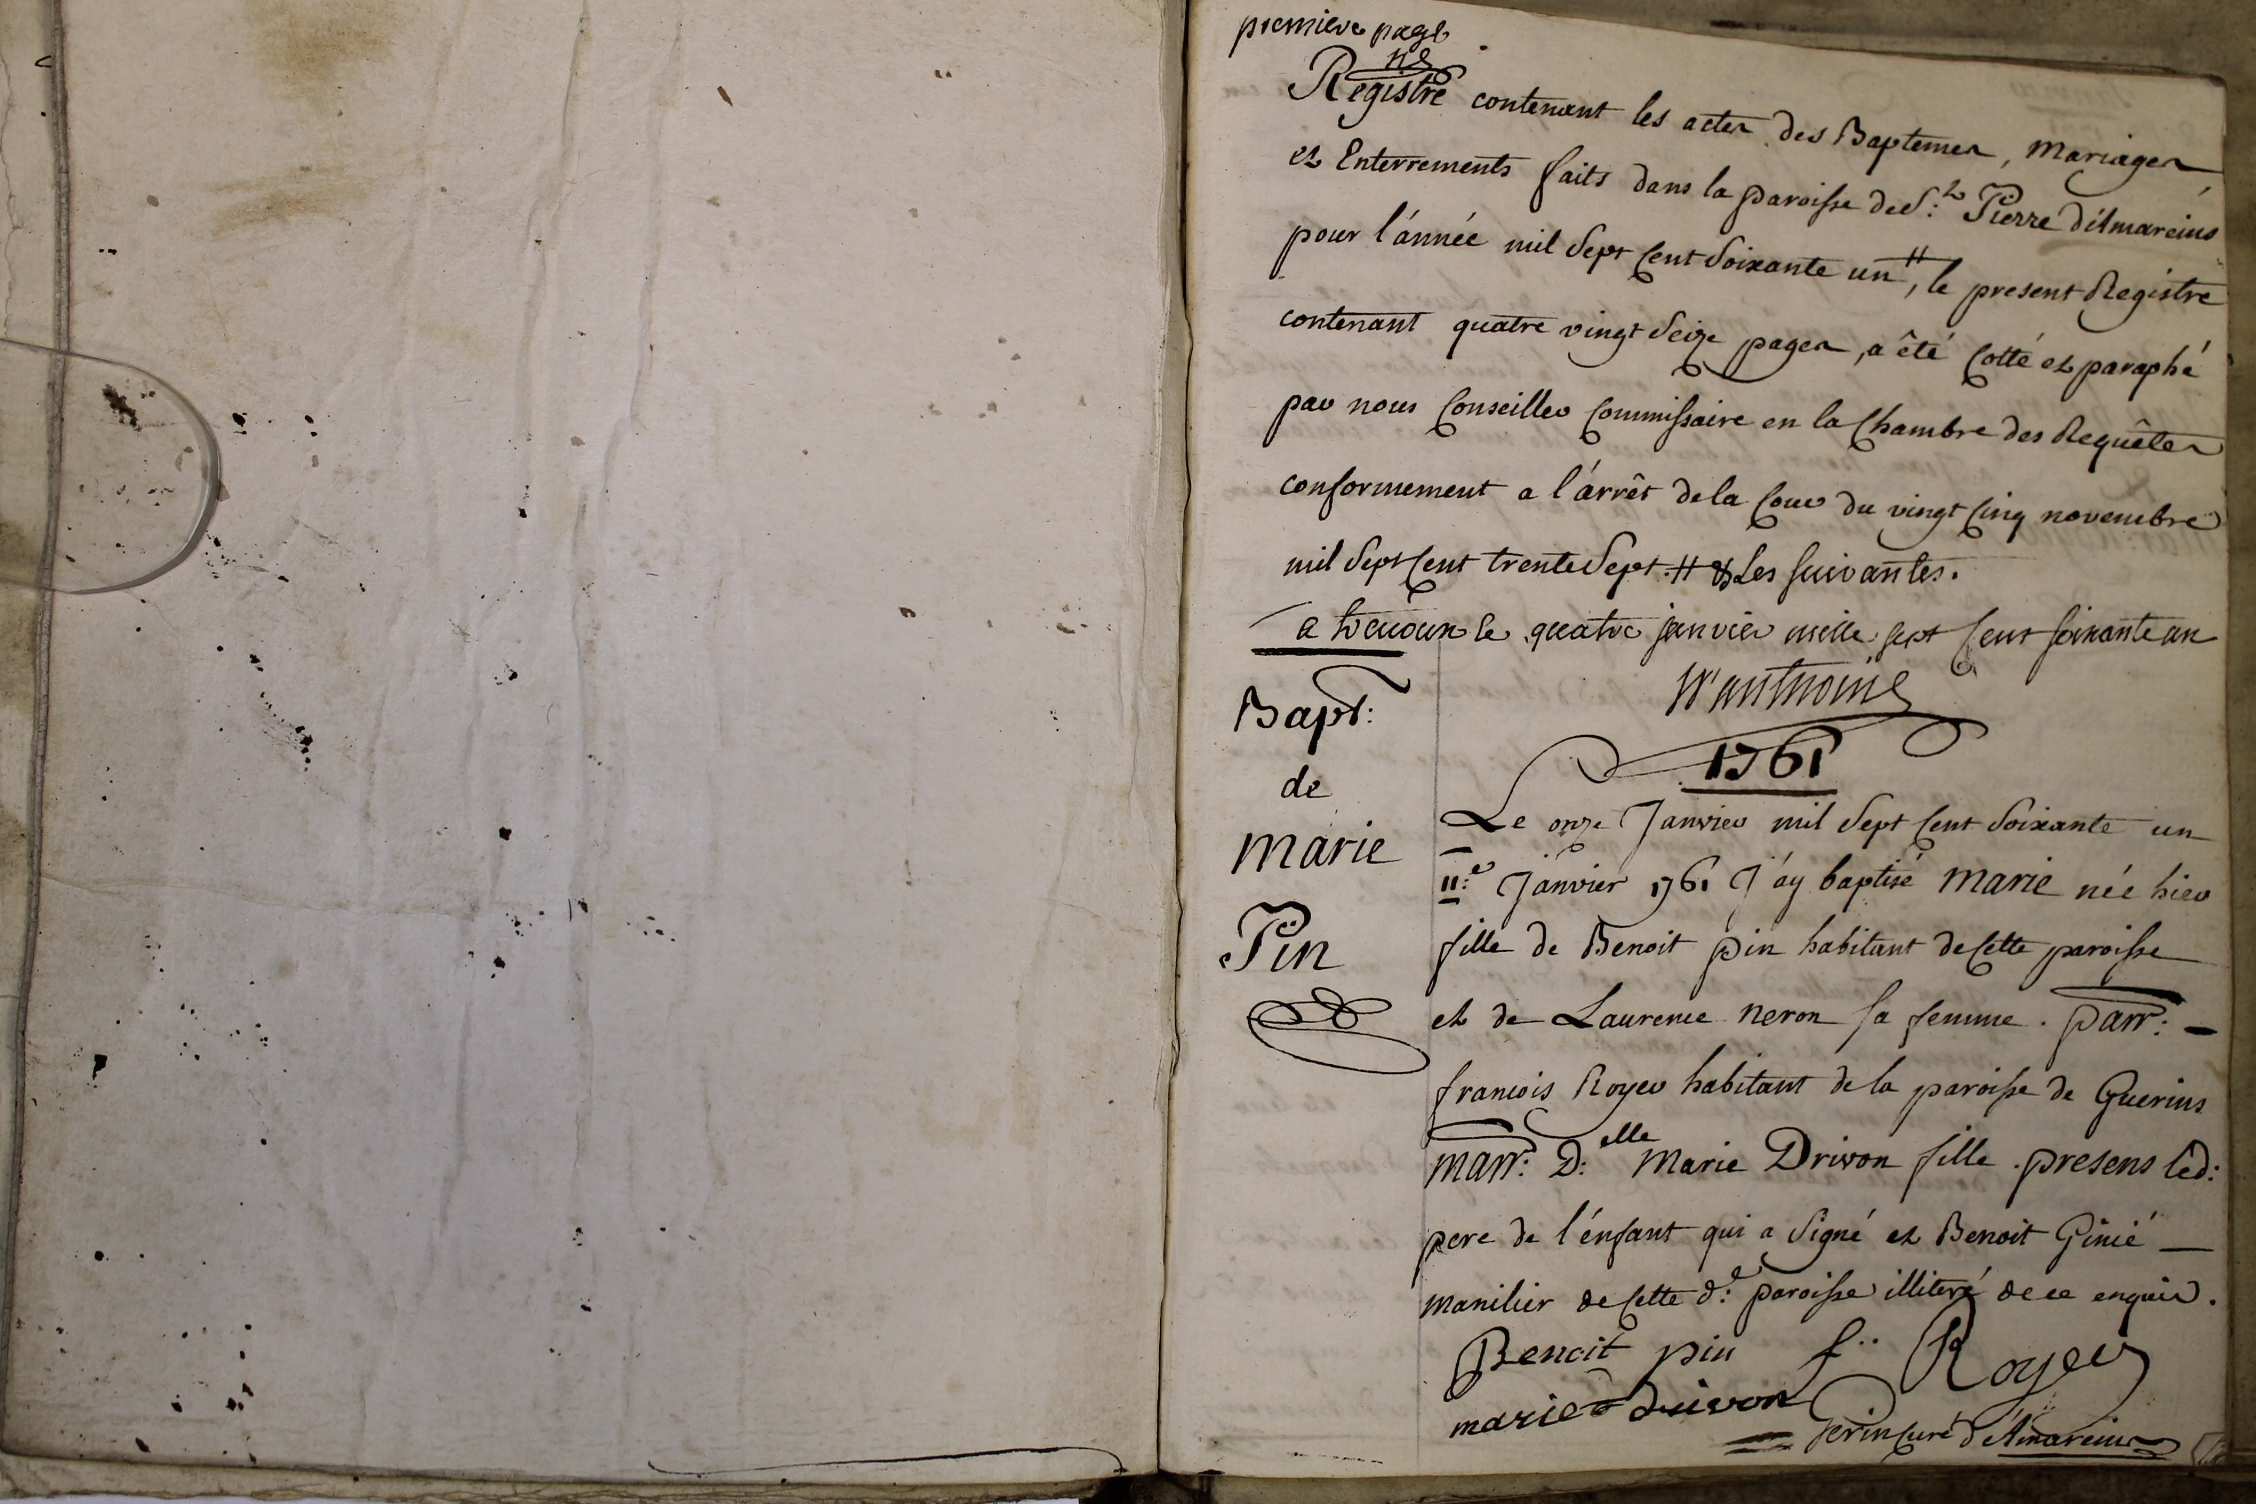 premiere page
Registre contenant les actes des Baptemes, Mariages
et Enterrements faits dans la paroisse de S:t Pierre d'Amareins
pour l'année mil Sept Cent Soixante un, le present Registre
contenant quatre vingt Seize pages, a êté Cotté et paraphé
par nous Conseiller Commissaire en la Chambre des Requêtes
conformement a l'arrêt de la Cour du vingt Cinq novembre
mil Sept Cent trente Sept. et Les suivantes.
a trevoux le quatre janvier mille sept Cent soixante un
1761
Bapt:
de
Marie
Pin
Le onze Janvier mil Sept Cent Soixante un
11:e Janvier 1761 J'ay baptisé Marie née hier
fille de Benoit pin habitant de Cette paroisse
et de Laurence Neron sa femme. Parr:
francois Royer habitant de la paroisse de Guerins
Marr: D:elle Marie Drivon fille. presens led:
pere de l'énfant qui a Signé et Benoit Ginié
manilier de Cette d:e paroisse illiteré de ce enquis.
Benoit pin f: Royer
marie drivon
Perin Curé d'Amareins